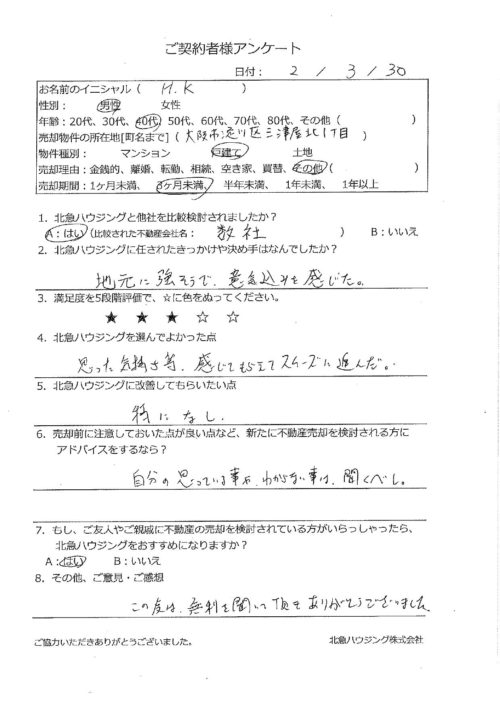 ご契約者様アンケート
日付： 2 / 3 / 30
お名前のイニシャル（ H.K ）
性別： 男性 女性
年齢：20代、30代、40代、50代、60代、70代、80代、その他（ ）
売却物件の所在地[町名まで]（大阪市淀川区三津屋北1丁目）
物件種別： マンション 戸建て 土地
売却理由：金銭的、離婚、転勤、相続、空き家、買替、その他（ ）
売却期間：1ヶ月未満、3ヶ月未満、 半年未満、 1年未満、 1年以上
1. 北急ハウジングと他社を比較検討されましたか？
A：はい（比較された不動産会社名： 数社 ） B：いいえ
2. 北急ハウジングに任されたきっかけや決め手はなんでしたか？
地元に強そうで、意気込みを感じた。
3. 満足度を5段階評価で、☆に色をぬってください。
★ ★ ★ ☆ ☆
4. 北急ハウジングを選んでよかった点
思った気持ち等、感じてもらえてスムーズに進んだ。
5. 北急ハウジングに改善してもらいたい点
特になし.
6. 売却前に注意しておいた点が良い点など、新たに不動産売却を検討される方に
アドバイスをするなら？
自分の思っている事や、わからない事は、聞くべし。
7. もし、ご友人やご親戚に不動産の売却を検討されている方がいらっしゃったら、
北急ハウジングをおすすめになりますか？
A：はい B：いいえ
8. その他、ご意見・ご感想
この度は、無理を聞いて頂きありがとうございました
ご協力いただきありがとうございました。 北急ハウジング株式会社